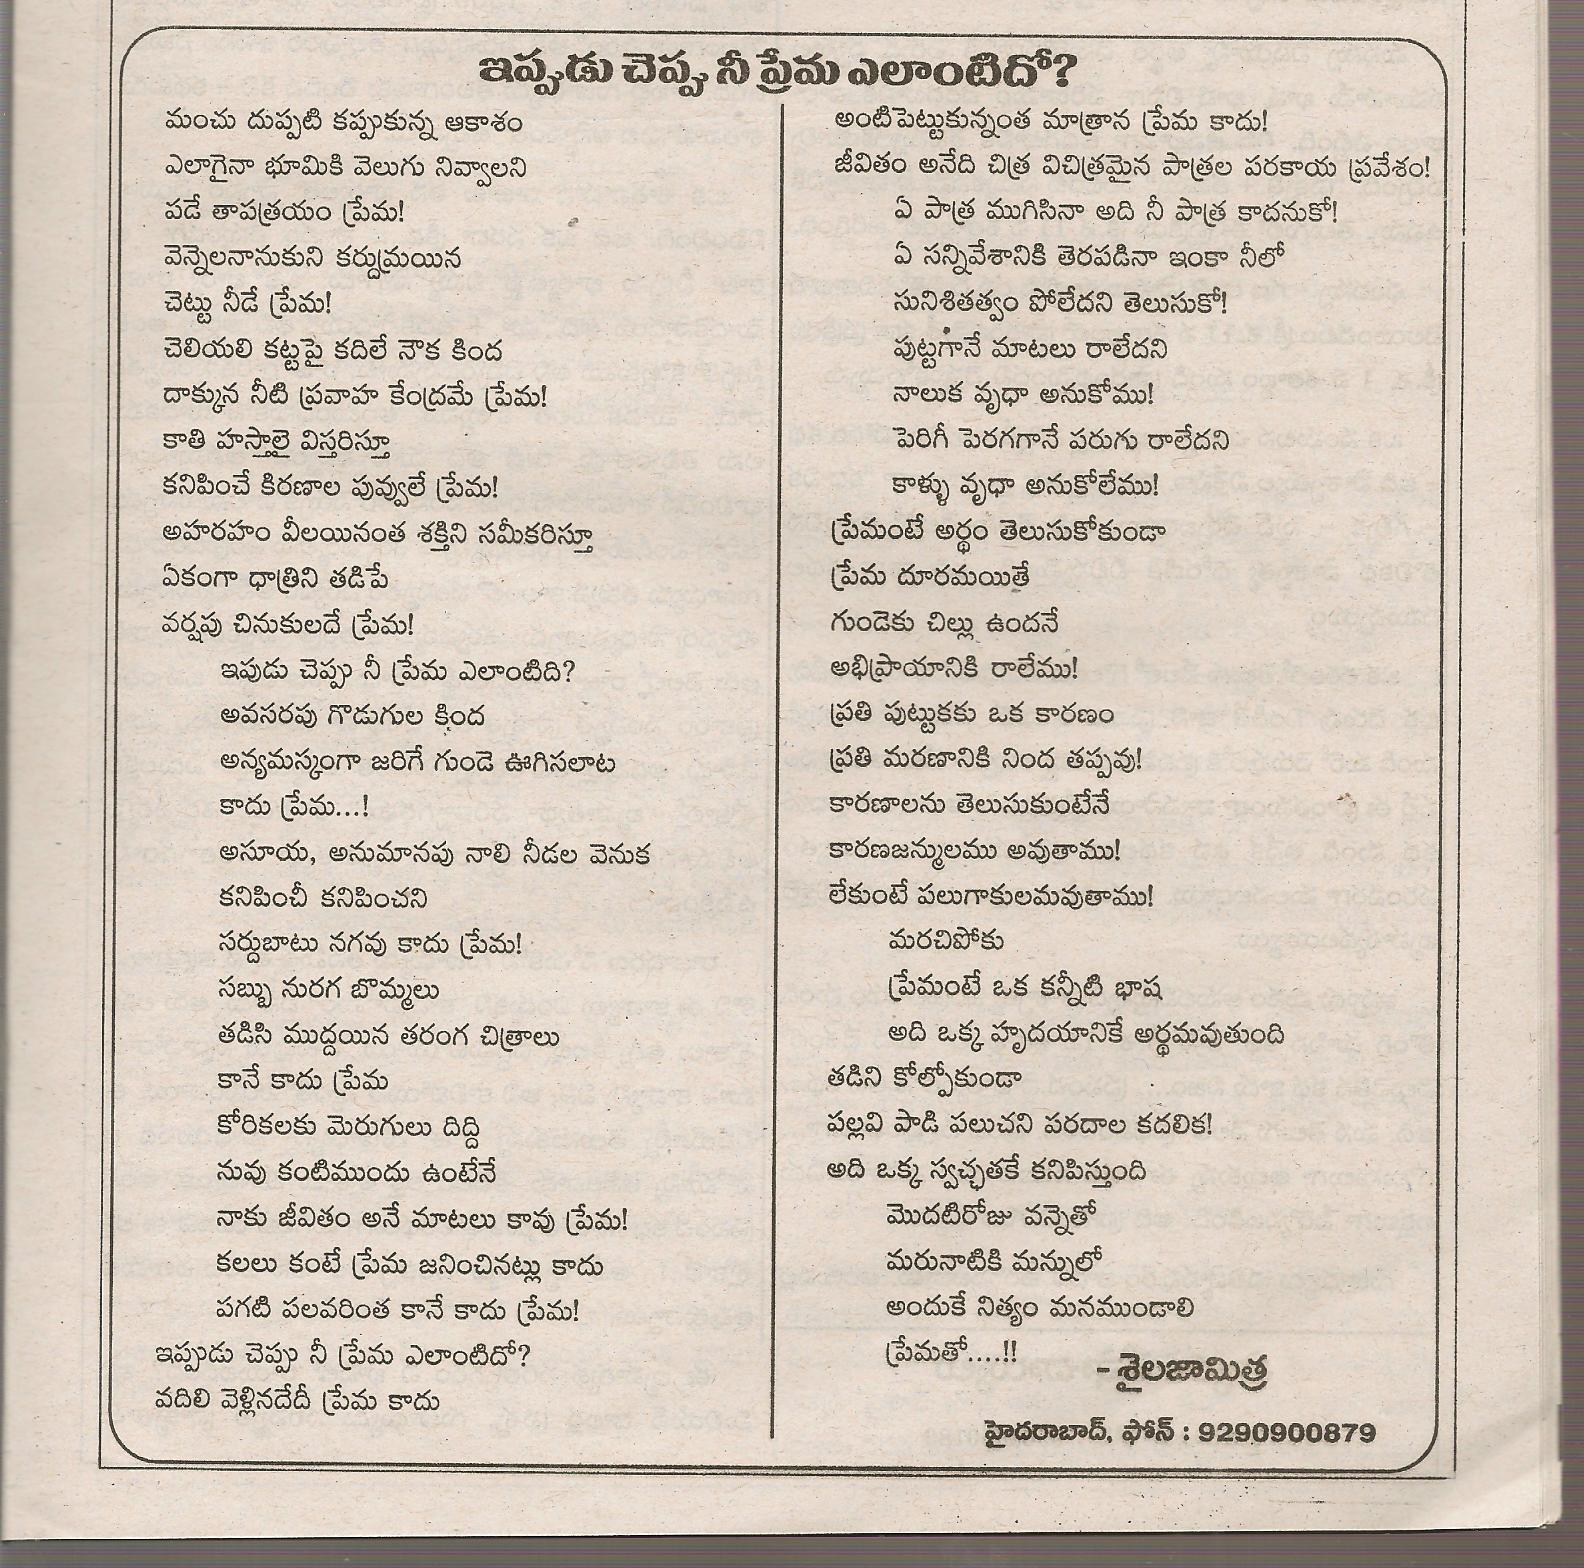 ఇప్పుడు చెప్పు నీ ప్రేమ ఎలాంటిదో?
మంచు దుప్పటి కప్పుకున్న ఆకాశం
ఎలాగైనా భూమికి వెలుగు నివ్వాలని
పడే తాపత్రయం ప్రేమ!
వెన్నెలనానుకుని కర్దుమ్రయిన
చెట్టు నీడే ప్రేమ!
చెలియలి కట్టపై కదిలే నౌక కింద
దాక్కున నీటి ప్రవాహ కేంద్రమే ప్రేమ!
కాతి హస్తాలై విస్తరిస్తూ
కనిపించే కిరణాల పువ్వులే ప్రేమ!
అహరహం వీలయినంత శక్తిని సమీకరిస్తూ
ఏకంగా ధాత్రిని తడిపే
వర్షపు చినుకులదే ప్రేమ!
ఇపుడు చెప్పు నీ ప్రేమ ఎలాంటిది?
అవసరపు గొడుగుల క్రింద
అన్యమస్కంగా జరిగే గుండె ఊగిసలాట
కాదు ప్రేమ...!
అసూయ, అనుమానపు నాలి నీడల వెనుక
కనిపించీ కనిపించని
సర్దుబాటు నగవు కాదు ప్రేమ!
సబ్బు నురగ బొమ్మలు
తడిసి ముద్దయిన తరంగ చిత్రాలు
కానే కాదు ప్రేమ
కోరికలకు మెరుగులు దిద్ది
నువు కంటిముందు ఉంటేనే
నాకు జీవితం అనే మాటలు కావు ప్రేమ!
కలలు కంటే ప్రేమ జనించినట్లు కాదు
పగటి పలవరింత కానే కాదు ప్రేమ!
ఇప్పుడు చెప్పు నీ ప్రేమ ఎలాంటిదో?
వదిలి వెళ్లినదేదీ ప్రేమ కాదు
అంటిపెట్టుకున్నంత మాత్రాన ప్రేమ కాదు!
జీవితం అనేది చిత్ర విచిత్రమైన పాత్రల పరకాయ ప్రవేశం!
ఏ పాత్ర ముగిసినా అది నీ పాత్ర కాదనుకో!
ఏ సన్నివేశానికి తెరపడినా ఇంకా నీలో
సునిశితత్వం పోలేదని తెలుసుకో!
పుట్టగానే మాటలు రాలేదని
నాలుక వృధా అనుకోము!
పెరిగీ పెరగగానే పరుగు రాలేదని
కాళ్ళు వృధా అనుకోలేము!
ప్రేమంటే అర్థం తెలుసుకోకుండా
ప్రేమ దూరమయితే
గుండెకు చిల్లు ఉందనే
అభిప్రాయానికి రాలేము!
ప్రతి పుట్టుకకు ఒక కారణం
ప్రతి మరణానికి నింద తప్పవు!
కారణాలను తెలుసుకుంటేనే
కారణజన్ములము అవుతాము!
లేకుంటే పలుగాకులమవుతాము!
మరచిపోకు
ప్రేమంటే ఒక కన్నీటి భాష
అది ఒక్క హృదయానికే అర్థమవుతుంది
తడిని కోల్పోకుండా
పల్లవి పాడి పలుచని పరదాల కదలిక!
అది ఒక్క స్వచ్ఛతకే కనిపిస్తుంది
మొదటిరోజు వన్నెతో
మరునాటికి మన్నులో
అందుకే నిత్యం మనముండాలి
ప్రేమతో....!!
- శైలజామిత్ర
హైదరాబాద్, ఫోన్ : 9290900879